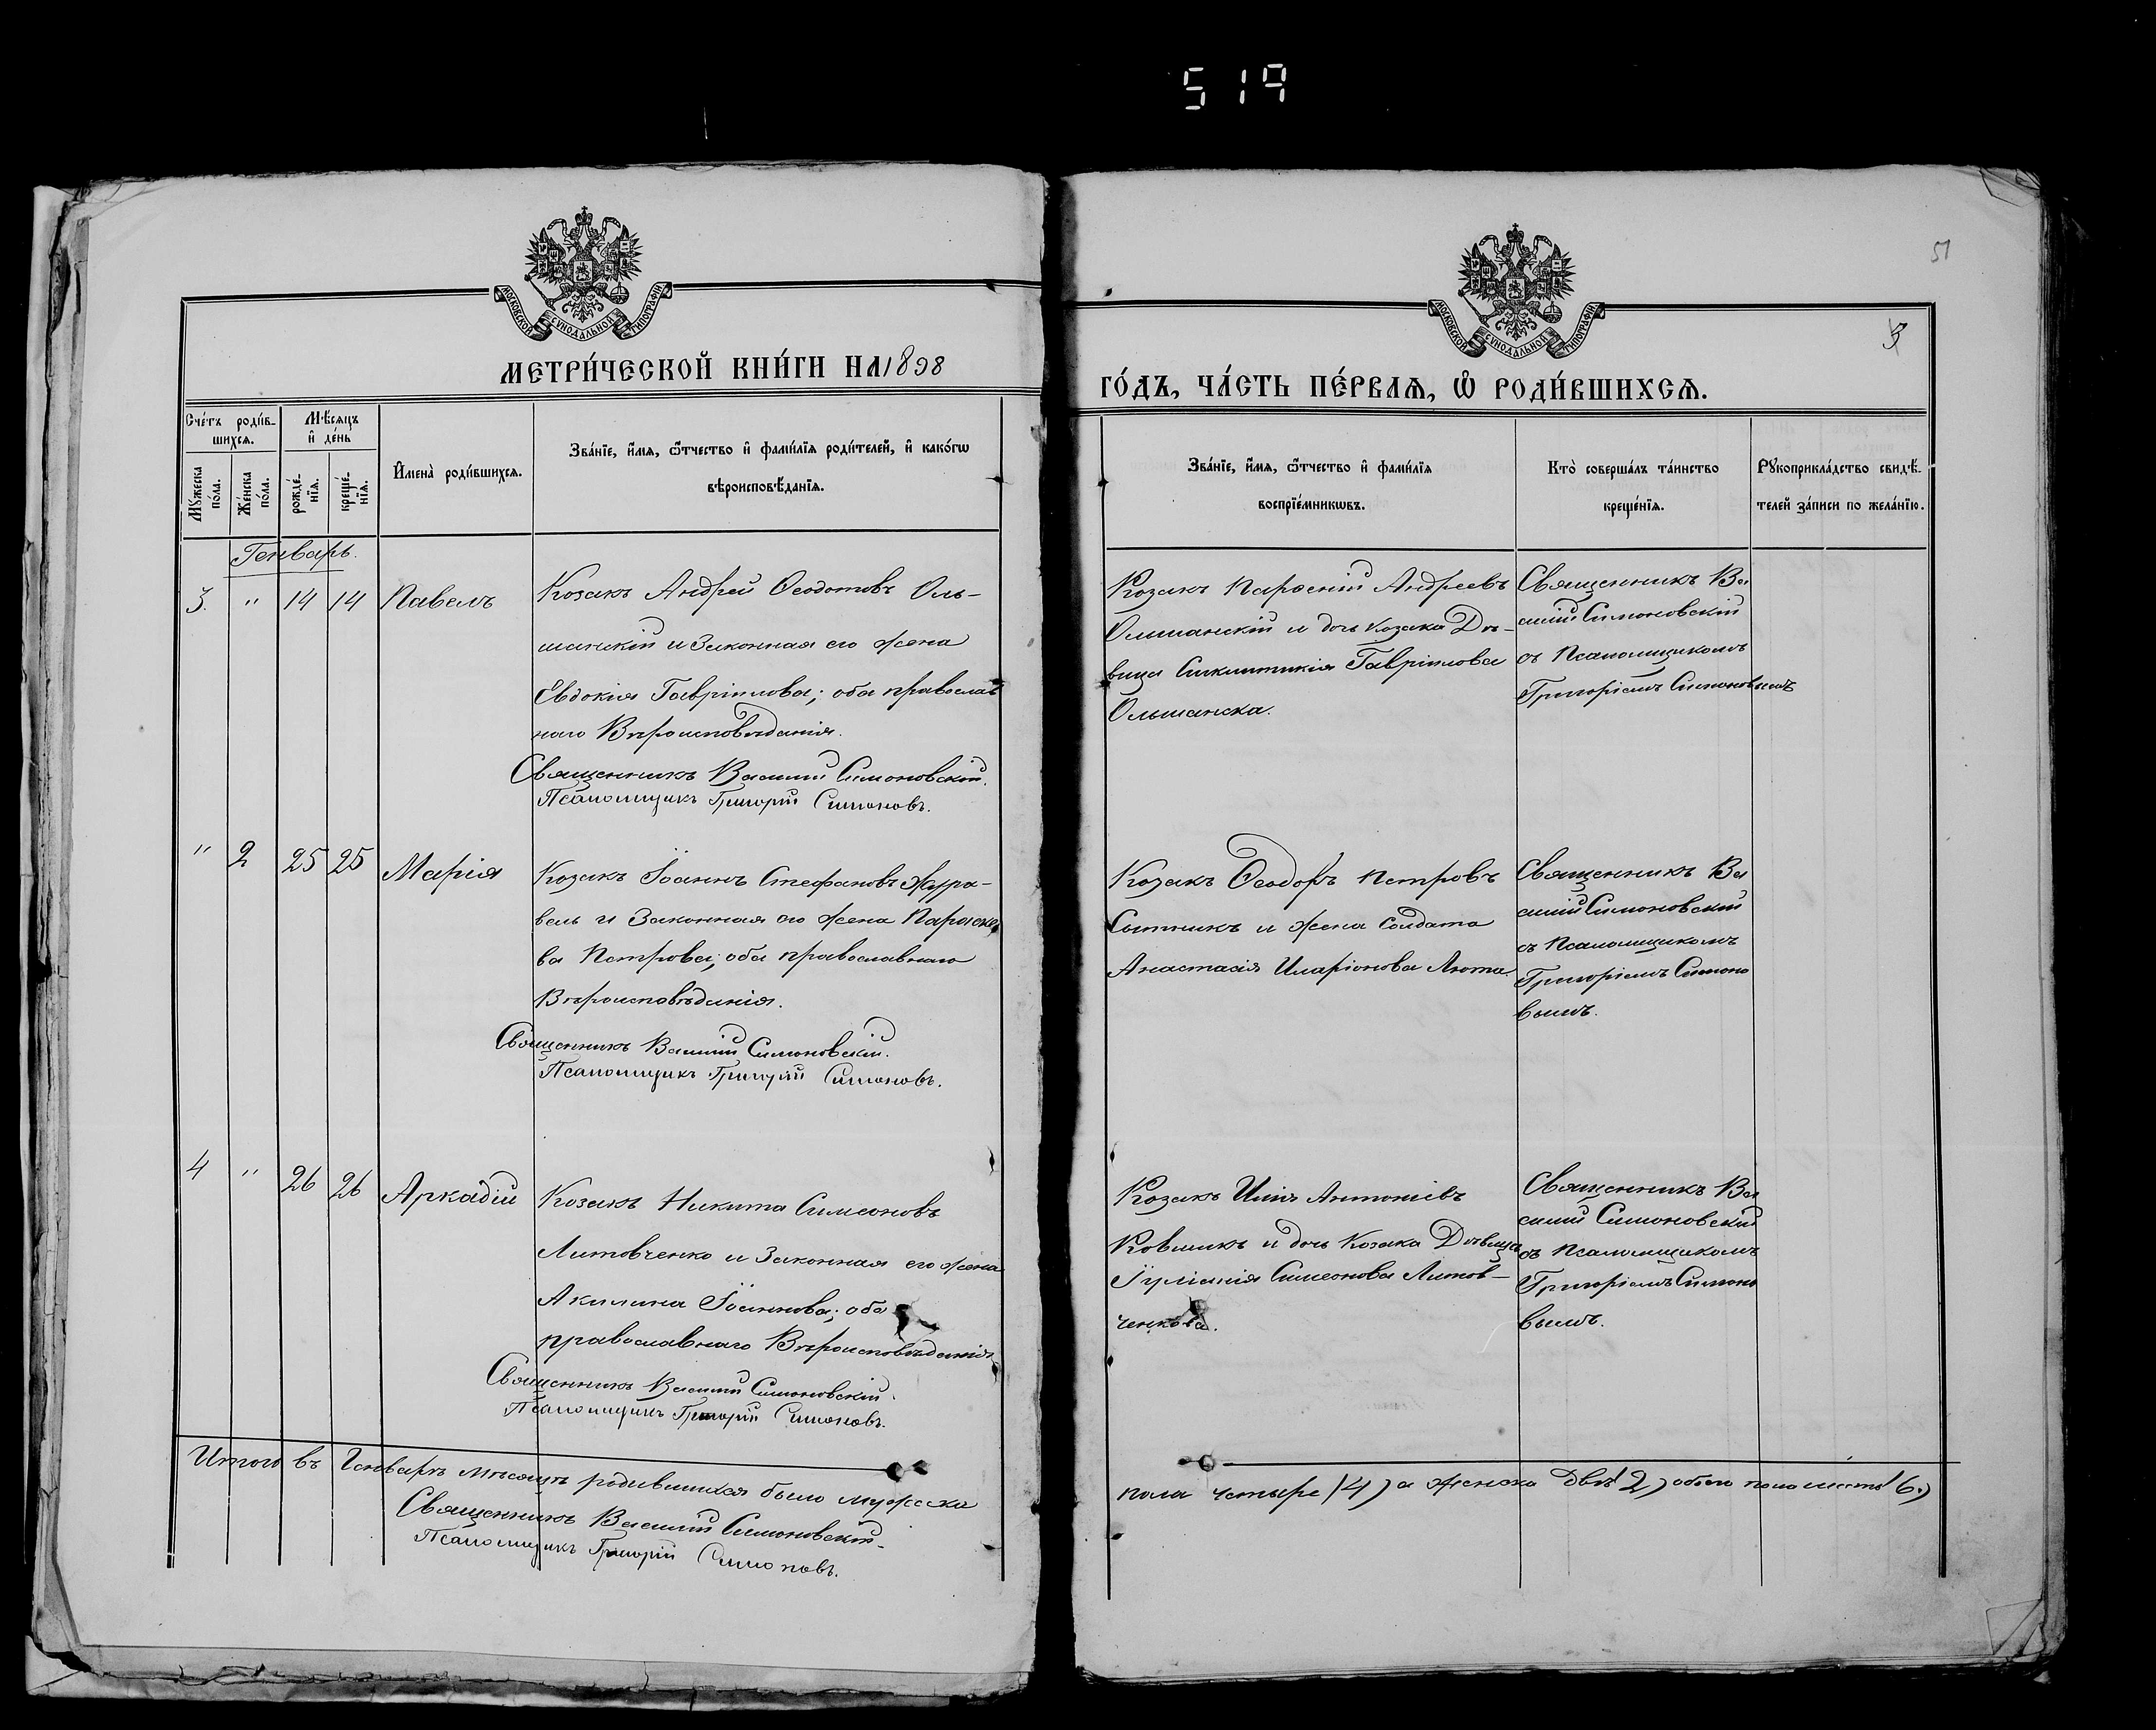 519
51
МОСКОВСКОЙ СѴНОДАЛЬНОЙ ТИПОГРАФІИ
МОСКОВСКОЙ СѴНОДАЛЬНОЙ ТИПОГРАФІИ
3
МЕТРИ́ЧЕСКОЙ КНИ́ГИ НА 1898
ГО́ДЪ, ЧА́СТЬ ПЕ́РВАѦ, Ѡ РОДИ́ВШИХСѦ.
Сче́тъ роди́в-
шихсѧ.
Мꙋжеска по́ла.
Же́нска по́ла.
Мѣ́сѧцъ
и҆ де́нь
рожде́-
нїѧ.
креще́-
нїѧ.
И҆мена̀ роди́вшихсѧ.
Зва́нїе, и҆́мѧ, ѻ҆́тчество и҆ фами́лїѧ роди́телей, и҆ како́гѡ
вѣроисповѣ́данїѧ.
Зва́нїе, и҆́мѧ, ѻ҆́тчество и҆ фами́лїѧ
воспрїе́мникѡвъ.
Кто̀ соверша́лъ та́инство
креще́нїѧ.
Рꙋкоприкла́дство свидѣ́-
телей за́писи по жела́нїю.
Генварь.
3. " 14 14 Павелъ
Козакъ Андрей Ѳеодотовъ Оль-
шанскій и законная его жена
Евдокія Гавріилова; оба православ
наго Вѣроисповѣданія.
Священникъ Василій Симоновскій.
Псаломщикъ Григорій Симоновъ.
Козакъ Парѳеній Андреевъ
Ольшанскій и дочь Козака Дѣ-
вица Синклитикія Гавріилова
Ольшанска.
Священникъ Ва
силій Симоновскій
съ Псаломщикомъ
Григоріемъ Симоновымъ
" 2 25 25 Марія
Козакъ Іоаннъ Стефановъ Жура-
вель и Законная его жена Параске
ва Петрова; оба православнаго
Вѣроисповѣданія.
Священникъ Василій Симоновскій.
Псаломщикъ Григорій Симоновъ.
Козакъ Ѳеодоръ Петровъ
Сотникъ и жена Солдата
Анастасія Иларіонова Люта.
Священникъ Ва
силій Симоновскій
съ Псаломщикомъ
Григоріемъ Симоно
вымъ.
4 " 26 26 Аркадій
Козакъ Никита Симеоновъ
Литовченко и Законная его жена
Акилина Іоаннова; оба
православнаго Вѣроисповѣданія
Священникъ Василій Симоновскій.
Псаломщикъ Григорій Симоновъ.
Козакъ Илія Антоніевъ
Ковшикъ и дочь Козака Дѣвица
Іуліанія Симеонова Литов-
ченкова.
Священникъ Ва
силій Симоновскій
съ Псаломщикомъ
Григоріемъ Симоно
вымъ.
Итого въ Генварѣ мѣсяцѣ родившихся было мужеска
пола четыре (4) а женска двѣ (2) обоего пола шесть (6.)
Священникъ Василій Симоновскій.
Псаломщикъ Григорій Симоновъ.